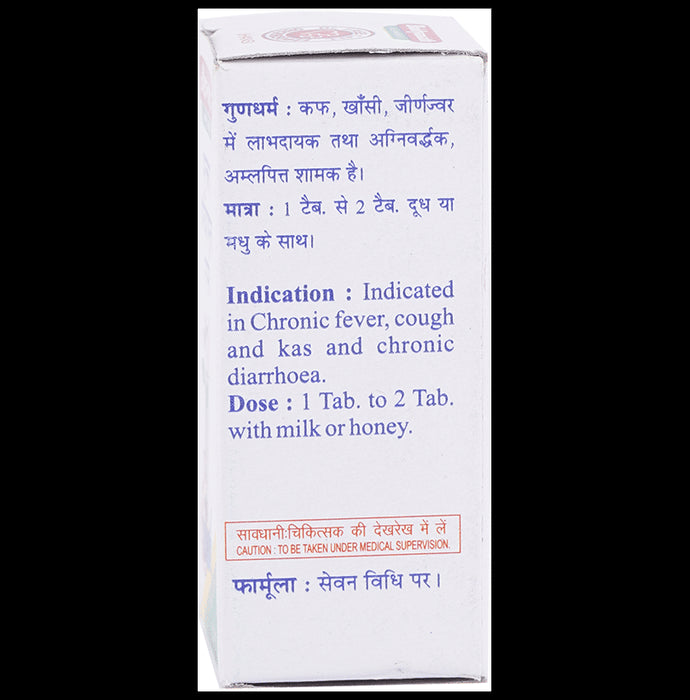 गुणधर्म : कफ, खाँसी, जीर्णज्वर
में लाभदायक तथा अग्निवर्द्धक,
अम्लपित्त शामक है।
मात्रा : 1 टैब. से 2 टैब. दूध या
मधु के साथ।
Indication : Indicated
in Chronic fever, cough
and kas and chronic
diarrhoea.
Dose : 1 Tab. to 2 Tab.
with milk or honey.
सावधानी:चिकित्सक की देखरेख में लें
CAUTION : TO BE TAKEN UNDER MEDICAL SUPERVISION.
फार्मूला : सेवन विधि पर।